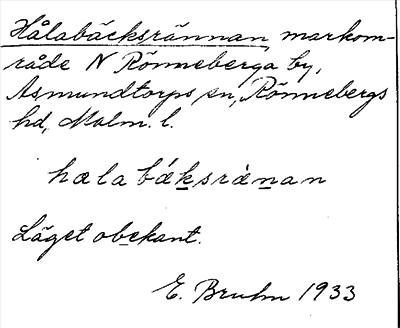 Hålabäcksrännan, markom-
råde N Rönneberga by,
Asmundtorps sn, Rönnebergs
hd, Malm. l.
hælabǽksrǽnan
Läget obekant.
E. Bruhn 1933